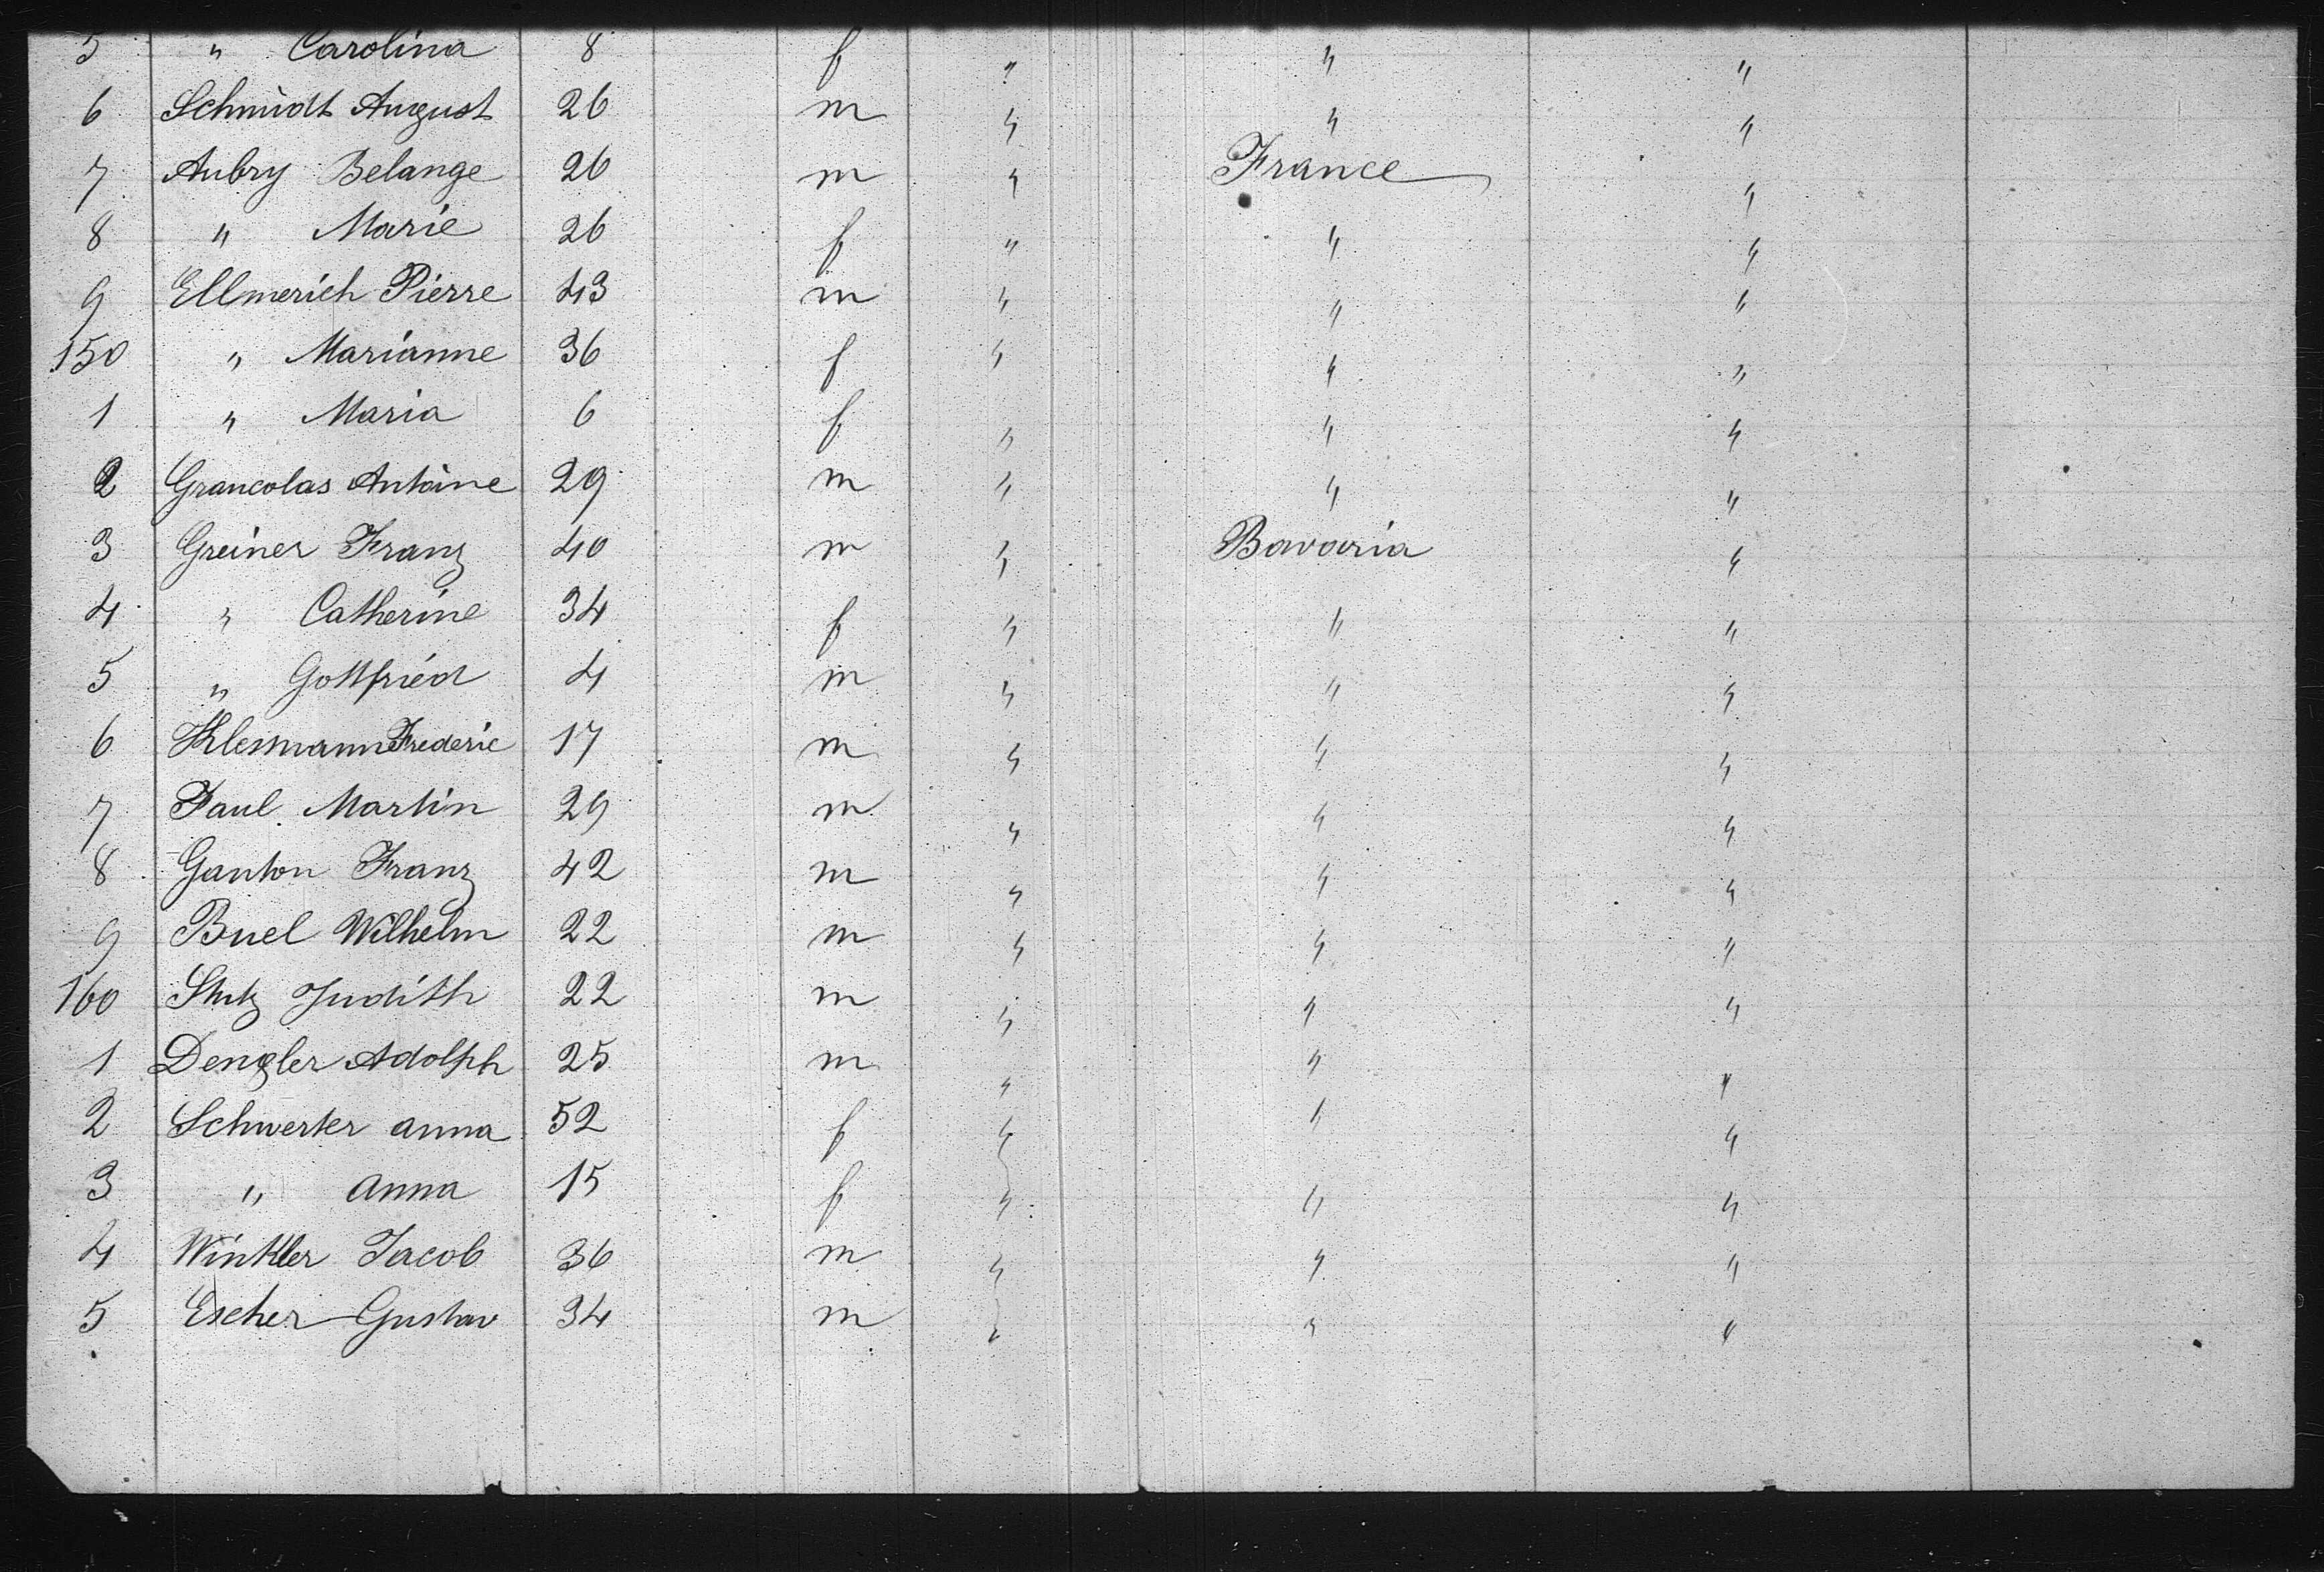 5 " Carolina 8 f " " "
6 Schmidt August 26 m " " "
7 Aubry Belange 26 m " France "
8 " Marie 26 f " " "
9 Ellmerich Pierre 43 m " " "
150 " Marianne 36 f " " "
1 " Maria 6 f " " "
2 Grancolas Antoine 29 m " " "
3 Greiner Franz 40 m " Bavaria "
4 " Catherine 34 f " " "
5 " Gottfried 4 m " " "
6 Frederic 17 m " " "
7 Martin 29 m " " "
8 Ganton Franz 42 m " " "
9 Buel Wilhelm 22 m " " "
160 Judith 22 m " " "
1 Dengler Adolph 25 m " " "
2 Schwerter anna 52 f " " "
3 " anna 15 f " " "
4 Winkler Jacob 36 m " " "
5 Escher Gustav 34 m " " "